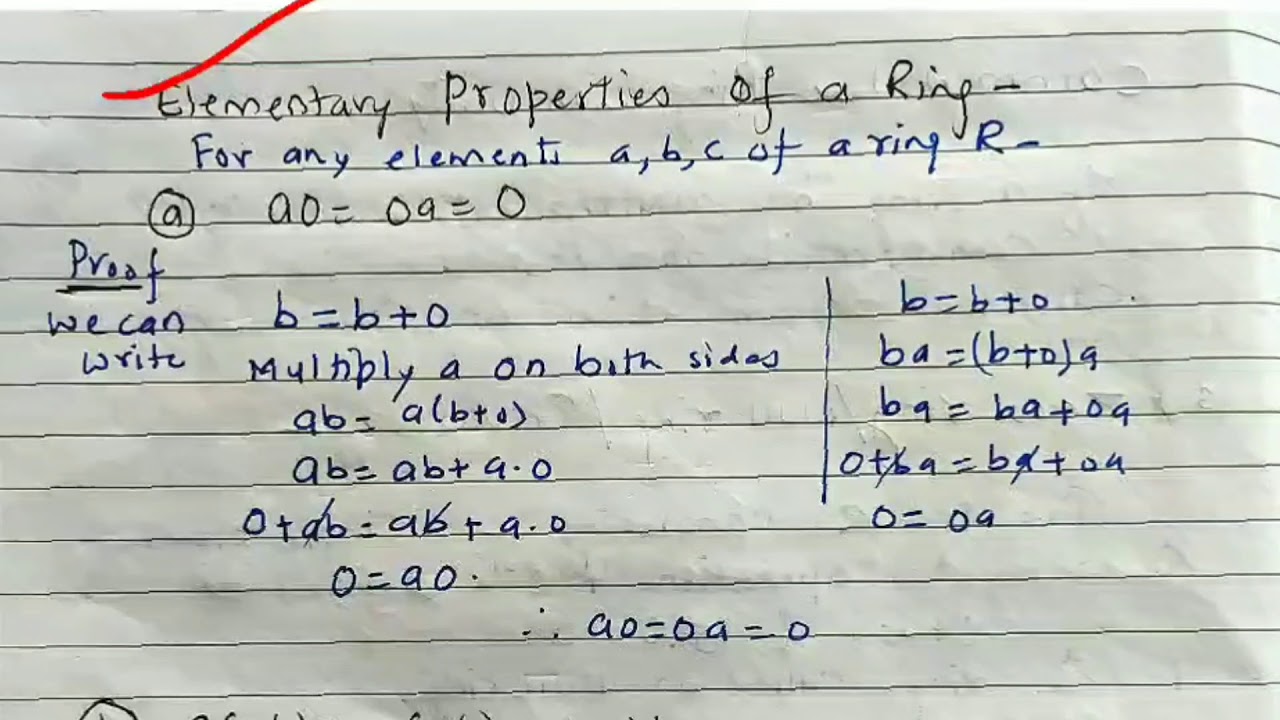 Elementary Properties Of a Ring -
For any elements a, b, c of a ring R -
(a) a0 = 0a = 0
Proof
we can write
b = b + 0
Multiply a on both sides
ab = a(b+0)
ab = ab + a.0
0 + ab = ab + a.0
0 = a0.
b = b + 0
ba = (b+0)a
ba = ba + 0a
0 + ba = ba + 0a
0 = 0a
∴ a0 = 0a = 0